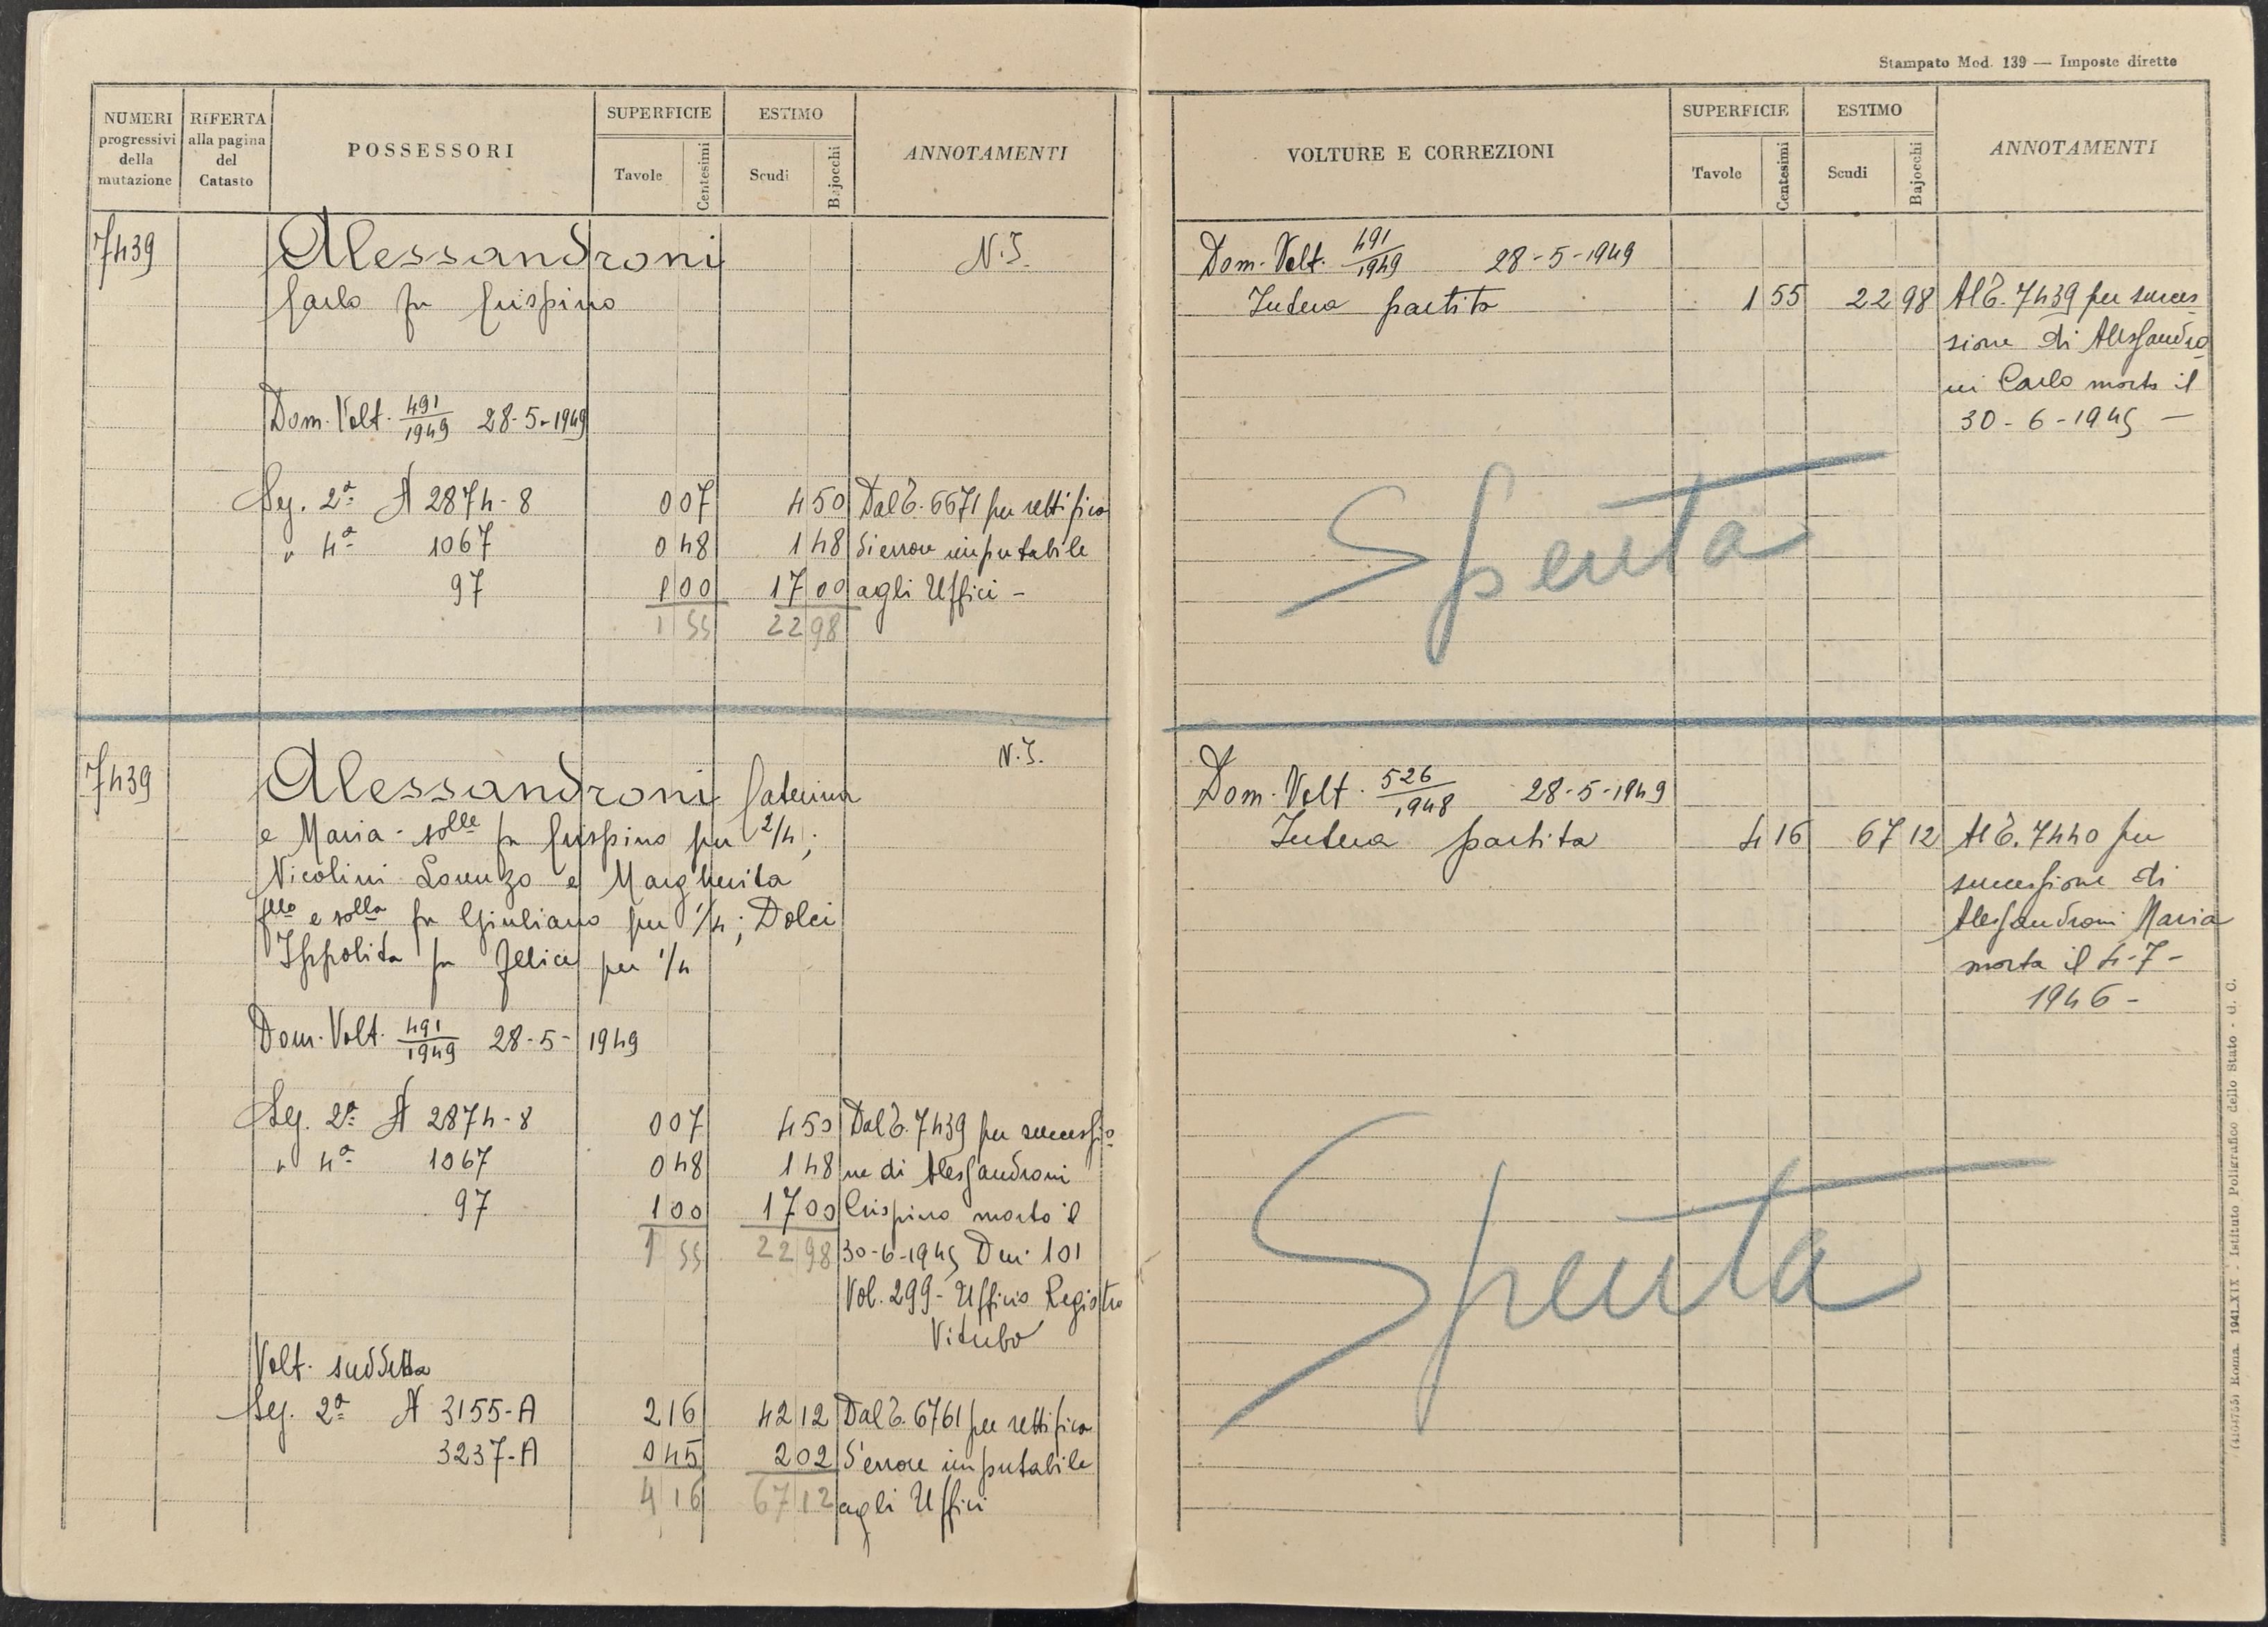 NUMERI progressivi della mutazione
RIFERTA alla pagina del Catasto
POSSESSORI
SUPERFICIE
Tavole Centesimi
ESTIMO
Scudi Bajocchi
ANNOTAMENTI
7439 Alessandroni N.I.
Carlo fu Crispino
Dom. Volt. 491/1949 28-5-1949
Seg. 2ª N 2874-8 0 07 4 50 Dal T. 6671 per rettifica
" 4ª 1067 0 48 1 48 di errore imputabile
97 1 00 17 00 agli Uffici -
1 55 22 98
7439 Alessandroni Caterina N.I.
e Maria - solle fu Crispino per 2/4;
Nicolini Lorenzo e Margherita
fllo e solla fu Giuliano per 1/4; Dolci
Ippolita fu Felice per 1/4
Dom. Volt. 491/1949 28-5-1949
Seg. 2ª N 2874-8 0 07 4 50 Dal T. 7439 per successio
" 4ª 1067 0 48 1 48 ne di Alessandroni
97 1 00 17 00 Crispino morto il
1 55 22 98 30-6-1945 Den. 101
Vol. 299 - Ufficio Registro
Viterbo
Volt. suddetta
Seg. 2ª N 3155-A 2 16 42 12 Dal T. 6761 per rettifica
3237-A 0 45 2 02 d'errore imputabile
4 16 67 12 agli Uffici
Stampato Mod. 139 — Imposte dirette
VOLTURE E CORREZIONI
SUPERFICIE
Tavole Centesimi
ESTIMO
Scudi Bajocchi
ANNOTAMENTI
Dom. Volt. 491/1949 28-5-1949
Intera partita 1 55 22 98 Al T. 7439 per succes
sione di Alessandro
ni Carlo morto il
30-6-1945 —
Spenta
Dom. Volt. 526/1948 28-5-1949
Intera partita 4 16 67 12 Al T. 7440 per
successione di
Alessandroni Maria
morta il 4-7-
1946 -
Spenta
Roma, 1941-XIX - Istituto Poligrafico dello Stato - G. C.